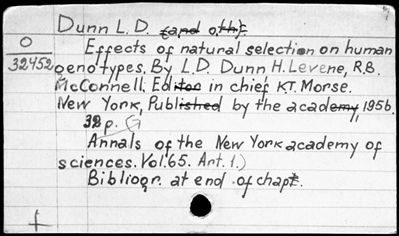 Dunn L.D. (and oth).
O
Effects of natural selection on human
32452
genotypes. By L.D. Dunn H. Levene, R.B.
McConnell. Editor in chief KT. Morse.
New York, Published by the academy, 1956.
32 p. (
Annals of the New York academy of
sciences. Vol. 65. Art. 1.)
Bibliogr. at end of chapt.